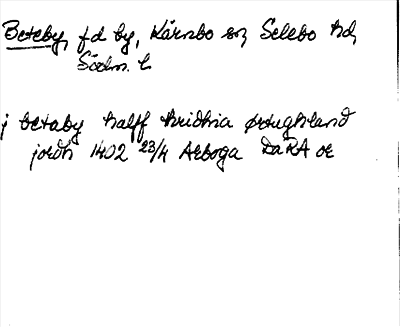 Beteby, fd by, Kärnbo sn, Selebo hd,
Södm. l.
j betaby halff thridhia ørtughland
jordh 1402 23/4 Arboga DaRA or